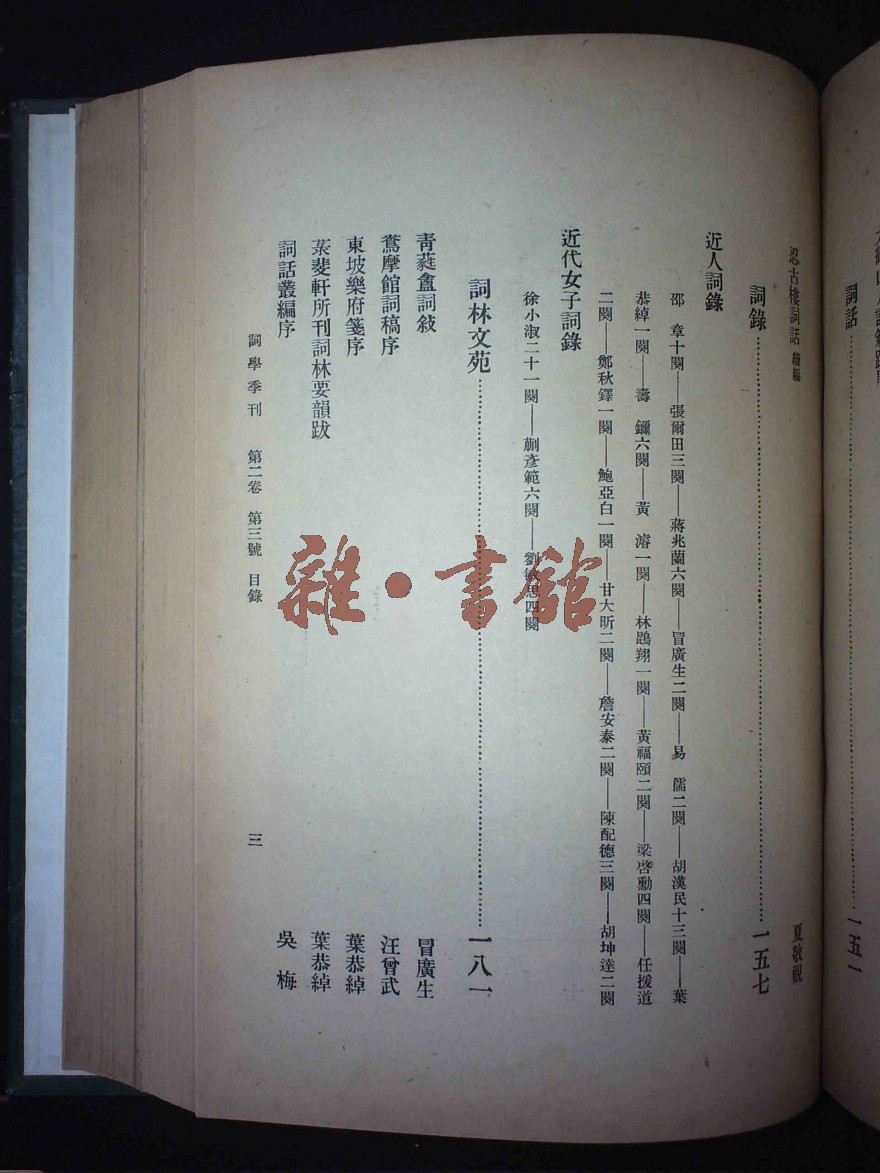 詞話……一五一
忍古樓詞話 續編 夏敬觀
詞錄……一五七
近人詞錄
邵　章十闋——張爾田三闋——蔣兆蘭六闋——冒廣生二闋——易　孺二闋——胡漢民十三闋——葉
恭綽一闋——壽　鑈六闋——黃　濬一闋——林鵾翔一闋——黃福頤二闋——梁啓勳四闋——任援道
二闋——鄭秋鐸一闋——鮑亞白一闋——甘大昕二闋——詹安泰二闋——陳配德三闋——胡坤達二闋
近代女子詞錄
徐小淑二十一闋——蒯彥範六闋——劉敏思四闋
詞林文苑……一八一
青蕤盦詞敍 冒廣生
鶱摩館詞稿序 汪曾武
東坡樂府箋序 葉恭綽
菉斐軒所刊詞林要韻跋 葉恭綽
詞話叢編序 吳　梅
詞學季刊　第二卷　第三號　目錄 三
雜·書館